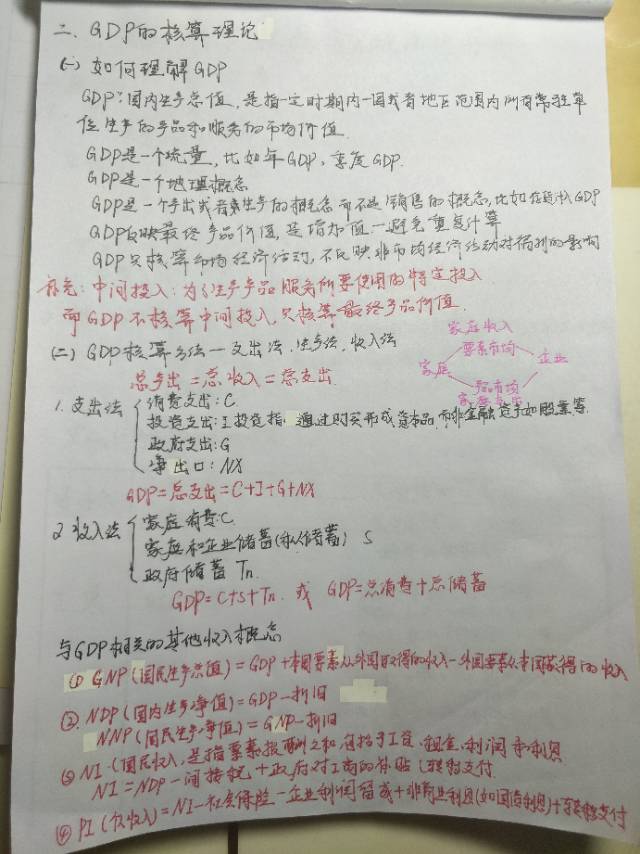 二、GDP的核算理论
(一) 如何理解GDP
GDP:国内生产总值,是指一定时期内一国或者地区范围内所有常驻单
位生产的产品和服务的市场价值.
GDP是一个流量,比如年GDP,季度GDP.
GDP是一个地理概念
GDP是一个产出或者生产的概念而不是销售的概念,比如存货计入GDP
GDP反映最终产品价值,是增加值—避免重复计算
GDP只核算市场经济活动,不反映非市场经济活动对福利的影响
补充:中间投入:为了生产产品服务所要使用的特定投入
而GDP不核算中间投入,只核算最终产品价值.
(二) GDP核算方法—支出法、生产法、收入法
家庭收入
要素市场
家庭
企业
产品市场
家庭支出
总产出=总收入=总支出.
1. 支出法
消费支出:C
投资支出:I 投资指 通过购买形成资本品,而非金融资产如股票等.
政府支出:G
净出口:NX
GDP=总支出=C+I+G+NX
2 收入法
家庭消费:C
家庭和企业储蓄(私人储蓄) S
政府储蓄 Tn.
GDP=C+S+Tn. 或 GDP=总消费+总储蓄
与GDP相关的其他收入概念
① GNP(国民生产总值)=GDP+本国要素从外国取得的收入-外国要素从本国获得的收入
②. NDP(国内生产净值)=GDP-折旧
NNP(国民生产净值)=GNP-折旧
③ NI.(国民收入,是指要素报酬之和,包括了工资、租金、利润和利息
NI=NDP-间接税+政府对工商的补贴 转移支付.
④ PI(个人收入)=NI-社会保险-企业利润留成+非商业利息(如国债利息)+转移支付